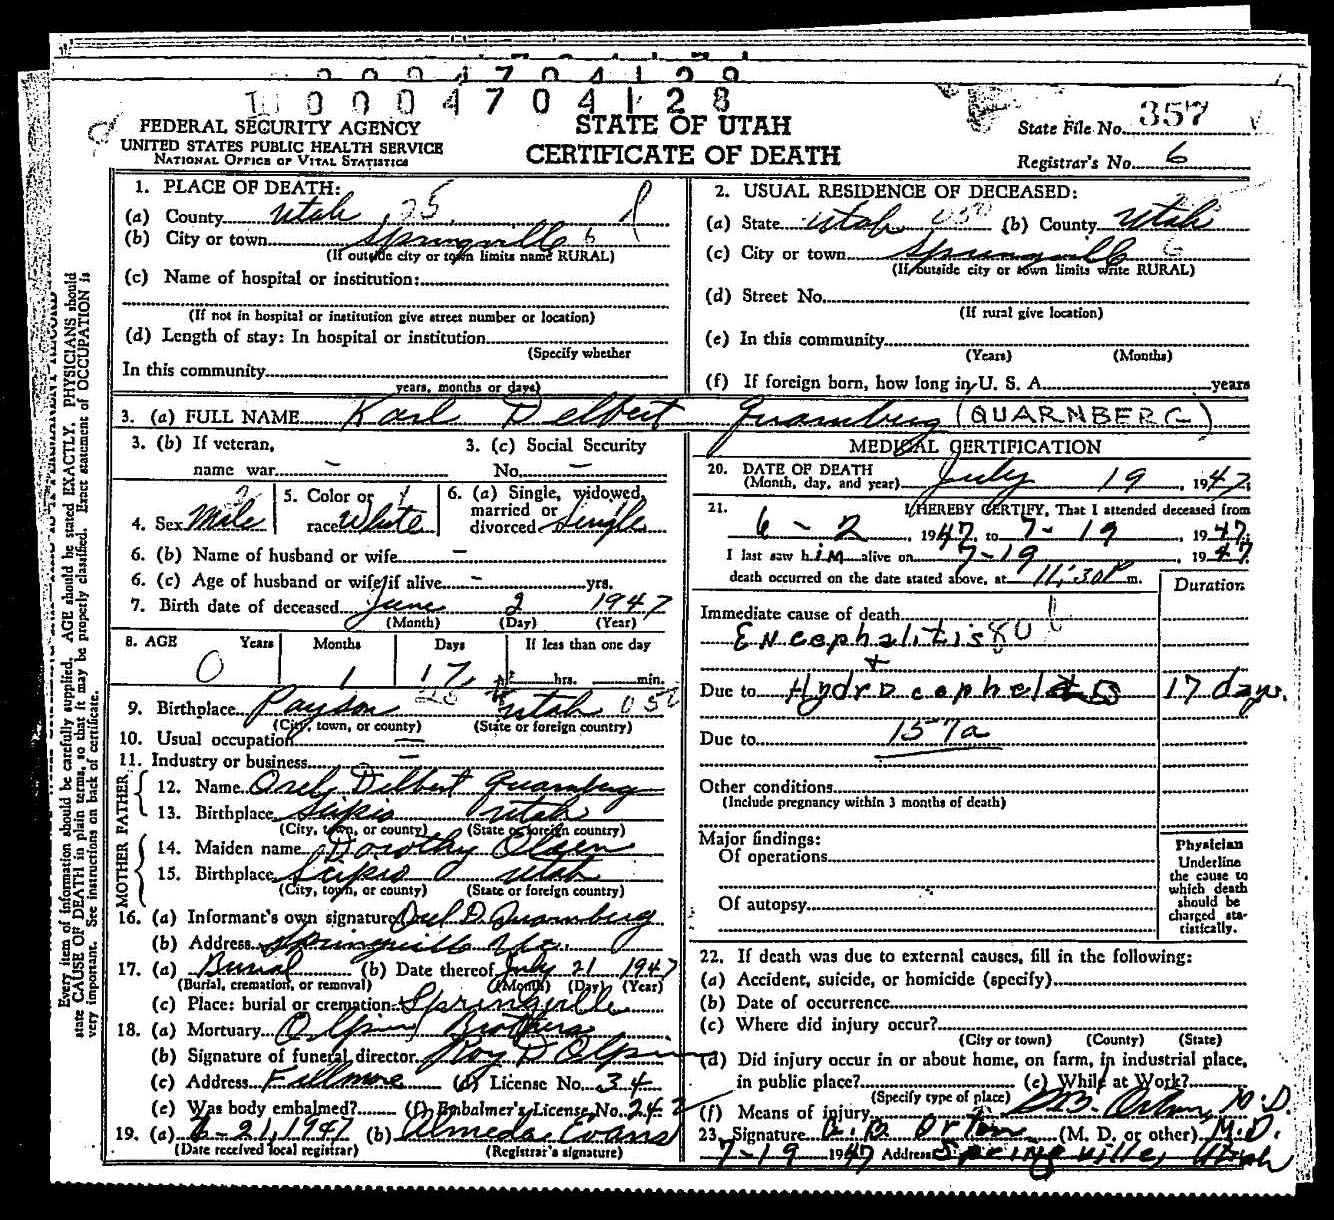 0 0 0 4 7 0 4 1 2 8
FEDERAL SECURITY AGENCY
UNITED STATES PUBLIC HEALTH SERVICE
NATIONAL OFFICE OF VITAL STATISTICS
STATE OF UTAH
CERTIFICATE OF DEATH
State File No. 357
Registrar's No. 6
Every item of information should be carefully supplied. AGE should be stated EXACTLY. PHYSICIANS should
state CAUSE OF DEATH in plain terms, so that it may be properly classified. Exact statement of OCCUPATION is
very important. See instructions on back of certificate.
1. PLACE OF DEATH:
(a) County Utah 25
(b) City or town Springville 6
(If outside city or town limits name RURAL)
(c) Name of hospital or institution:
(If not in hospital or institution give street number or location)
(d) Length of stay: In hospital or institution
(Specify whether
In this community
years, months or days)
2. USUAL RESIDENCE OF DECEASED:
(a) State Utah (b) County Utah
(c) City or town Springville 6
(If outside city or town limits write RURAL)
(d) Street No.
(If rural give location)
(e) In this community
(Years) (Months)
(f) If foreign born, how long in U. S. A. years
3. (a) FULL NAME Karl Delbert Quarnberg (QUARNBERG)
3. (b) If veteran,
name war –
3. (c) Social Security
No. –
4. Sex Male
5. Color or
race White
6. (a) Single, widowed,
married or
divorced Single
6. (b) Name of husband or wife –
6. (c) Age of husband or wife if alive – yrs.
7. Birth date of deceased June 2 1947
(Month) (Day) (Year)
8. AGE Years Months Days If less than one day
0 1 17 hrs. min.
9. Birthplace Payson Utah
(City, town, or county) (State or foreign country)
10. Usual occupation
11. Industry or business
FATHER
12. Name Orel Delbert Quarnberg
13. Birthplace Scipio Utah
(City, town, or county) (State or foreign country)
MOTHER
14. Maiden name Dorothy Olsen
15. Birthplace Scipio Utah
(City, town, or county) (State or foreign country)
16. (a) Informant's own signature Orel D. Quarnberg
(b) Address Springville
17. (a) Burial (b) Date thereof July 21 1947
(Burial, cremation, or removal) (Month) (Day) (Year)
(c) Place: burial or cremation Springville
18. (a) Mortuary Olpin Brothers
(b) Signature of funeral director Roy D Olpin
(c) Address Fillmore (d) License No. 34
(e) Was body embalmed? (f) Embalmer's License No. 242
19. (a) 21, 1947 (b) Almeda Evans
(Date received local registrar) (Registrar's signature)
MEDICAL CERTIFICATION
20. DATE OF DEATH
(Month, day, and year) July 19, 1947
21. I HEREBY CERTIFY, That I attended deceased from
6 - 2, 1947, to 7-19, 1947.
I last saw him alive on 7-19 1947
death occurred on the date stated above, at 11:30 P m.
Duration
Immediate cause of death
ENcephalitis 80
+
Due to Hydrocephelus 17 days.
Due to 157a
Other conditions
(Include pregnancy within 3 months of death)
Major findings:
Of operations
Of autopsy
Physician
Underline
the cause to
which death
should be
charged sta-
tistically.
22. If death was due to external causes, fill in the following:
(a) Accident, suicide, or homicide (specify)
(b) Date of occurrence
(c) Where did injury occur?
(City or town) (County) (State)
(d) Did injury occur in or about home, on farm, in industrial place,
in public place? (e) While at Work?
(Specify type of place)
(f) Means of injury Orton, M.D.
23. Signature B. B. Orton (M. D. or other) M.D.
7-19 1947 Address Springville, Utah